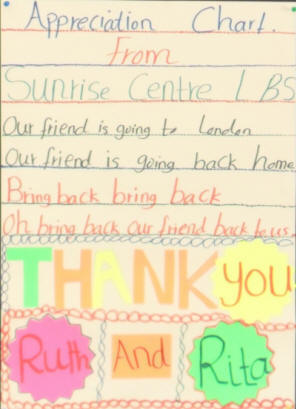 Appreciation Chart.
From
Sunrise Centre LBS
Our friend is going to London
Our friend is going back home
Bring back bring back
Oh bring back our friend back to us.
THANK you
Ruth And Rita